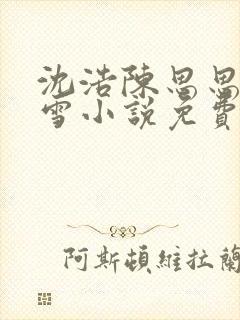 沈浩陳思思
雪小說免費
阿斯頓維拉蘭